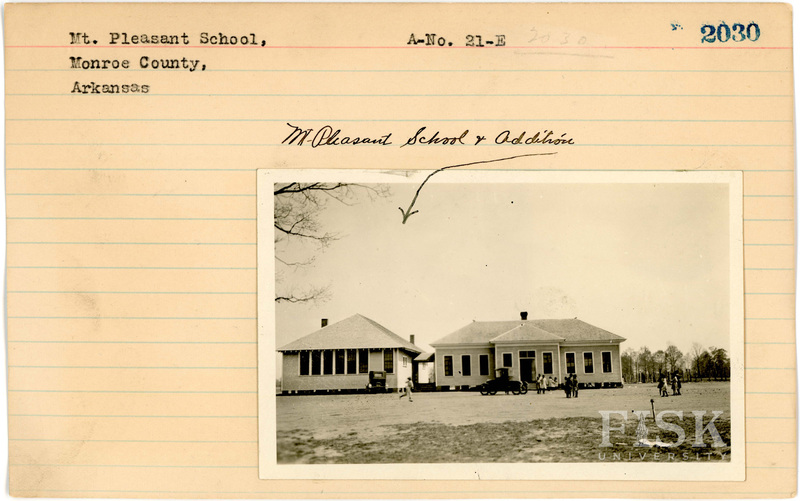 Mt. Pleasant School, A-No. 21-E 2030 2030
Monroe County,
Arkansas
Mt. Pleasant School & Addition
FISK
UNIVERSITY